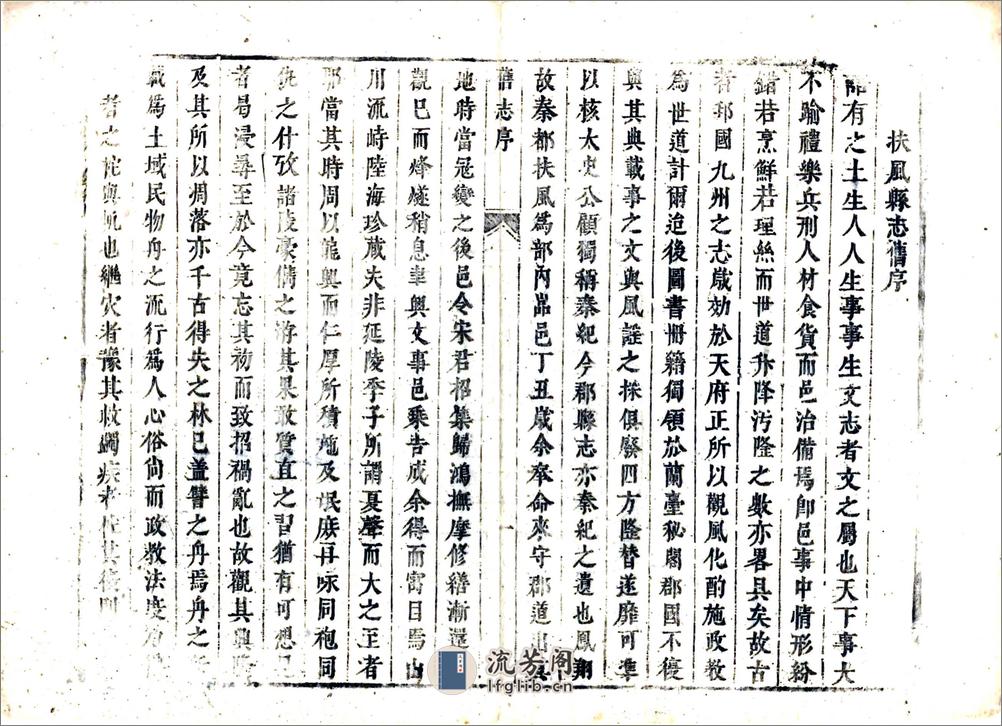 扶風縣志舊序
有之土生人人生事事生文志者文之屬也天下事大
不踰禮樂兵刑人材食貨而邑治備焉卽邑事中情形紛
錯若烹鮮若理絲而世道升降汚隆之數亦畧具矣故古
者邦國九州之志歲効於天府正所以觀風化酌施政教
爲世道計爾迨後圖書冊籍獨領於蘭臺秘閣郡國不復
與其典載事之文與風謠之採俱廢四方隆替遂靡可凖
以核太史公顧獨稱秦紀今郡縣志亦秦紀之遺也鳳翔
故秦郡扶風爲部內嵓邑丁丑歲余奉命來守郡道出其
舊志序
地時當冦變之後邑令宋君招集歸鴻撫摩修繕漸還
觀巳而烽燧稍息聿興文事邑乗告成余得而寓目焉山
川流峙陸海珍藏夫非延陵季子所謂夏聲而大之王者
耶當其時周以龍興而仁厚所積施及氓庶再咏同袍同
仇之什攷諸陵豪儔之游其果敢質直之習猶有可想已
者曷浸尋至於今竟忘其初而致招禍亂也故觀其興
及其所以凋落亦千古得失之林巳蓋譬之舟焉舟之
職爲土域民物舟之流行爲人心俗尚而政教法度
者之柁與帆也繼災者豫其救蠲疾者
流芳阁
lfglib.cn